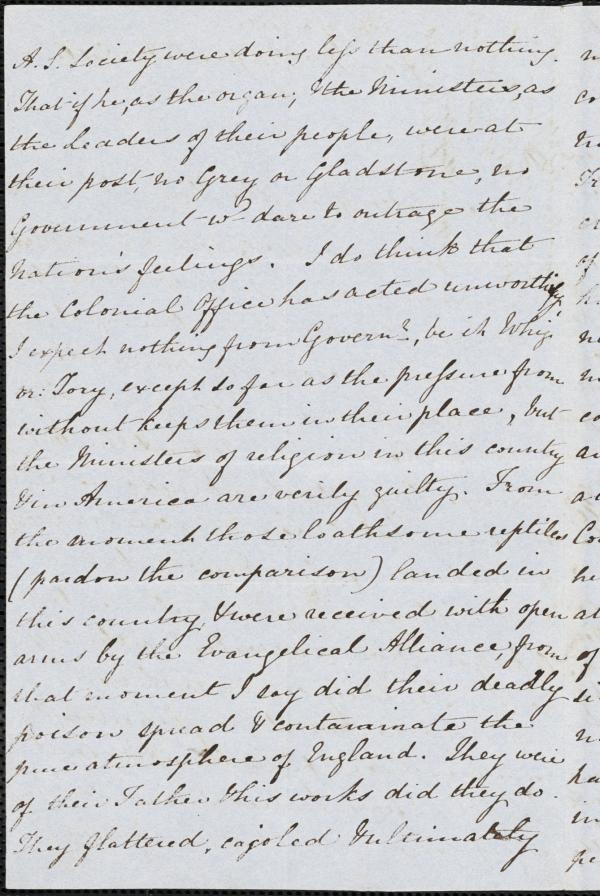 A. S. Society were doing less than nothing.
That if he, as the organ, & the Ministers, as
the Leaders of their people, were at
their post, no Grey or Gladstone, no
Government wd dare to outrage the
Nation's feelings. I do think that
the Colonial Office has acted unworthily,
I expect nothing from Governt., be it Whig
or Tory, except so far as the pressure from
without keeps them in their place, but
the Ministers of religion in this country
& in America are verily guilty. From
the moment those loathsome reptiles
(pardon the comparison) landed in
this country, & were received with open
arms by the Evangelical Alliance, from
that moment I say did their deadly
poison spread & contaminate the
pure atmosphere of England. They were
of their Father & his works did they do.
They flattered, cajoled & ultimately